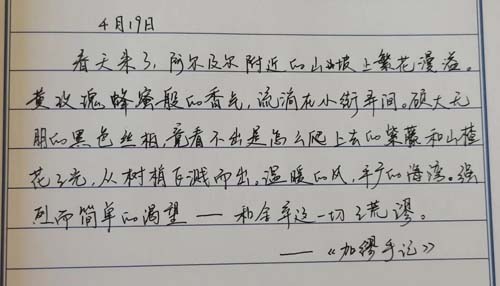 4月19日
春天来了,阿尔及尔附近的山坡上繁花漫溢。
黄玫瑰蜂蜜般的香气,流淌在小街平间。硕大无
朋的黑色丝柏,竟看不出是怎么爬上去的紫藤和山楂
花之光,从树梢飞溅而出。温暖的风,平广的海湾。强
烈而简单的渴望——和全部这一切之荒谬。
——《加缪手记》